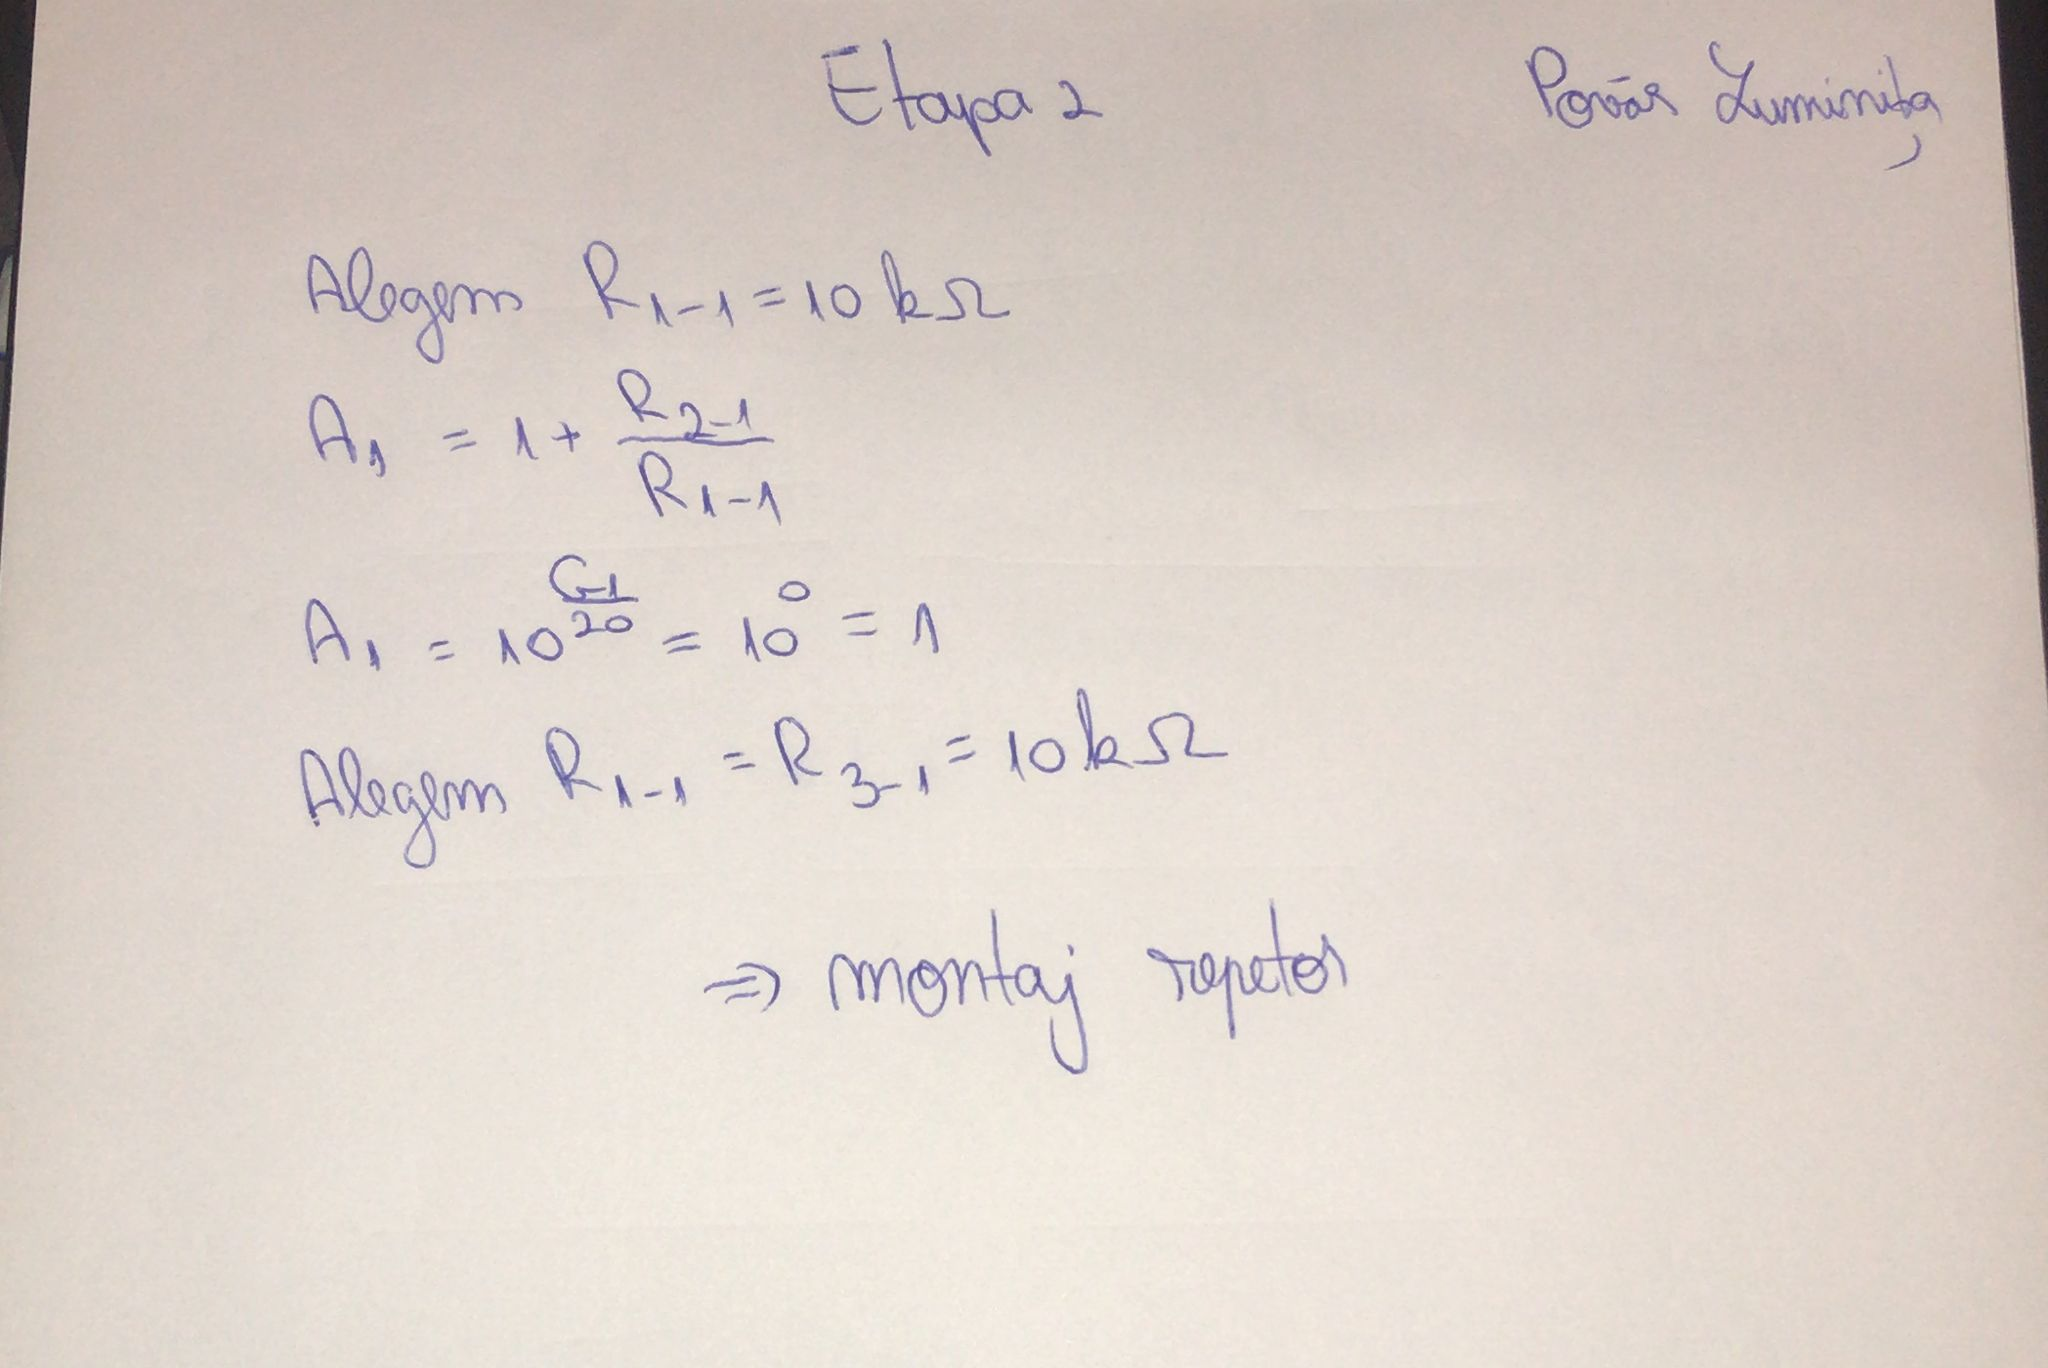 Etapa 2
Luminița
Alegem R1-1 = 10 kΩ
A1 = 1 + R2-1 / R1-1
A1 = 10^(G1/20) = 10^0 = 1
Alegem R1-1 = R3-1 = 10 kΩ
⇒ montaj repetor